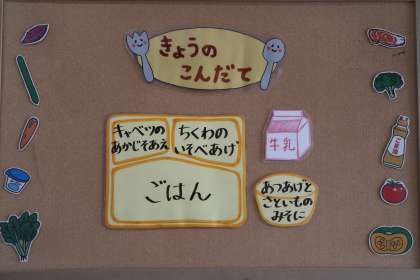 きょうの
こんだて
キャベツの
あかじそあえ
ちくわの
いそべあげ
ごはん
牛乳
あつあげと
さといもの
みそに